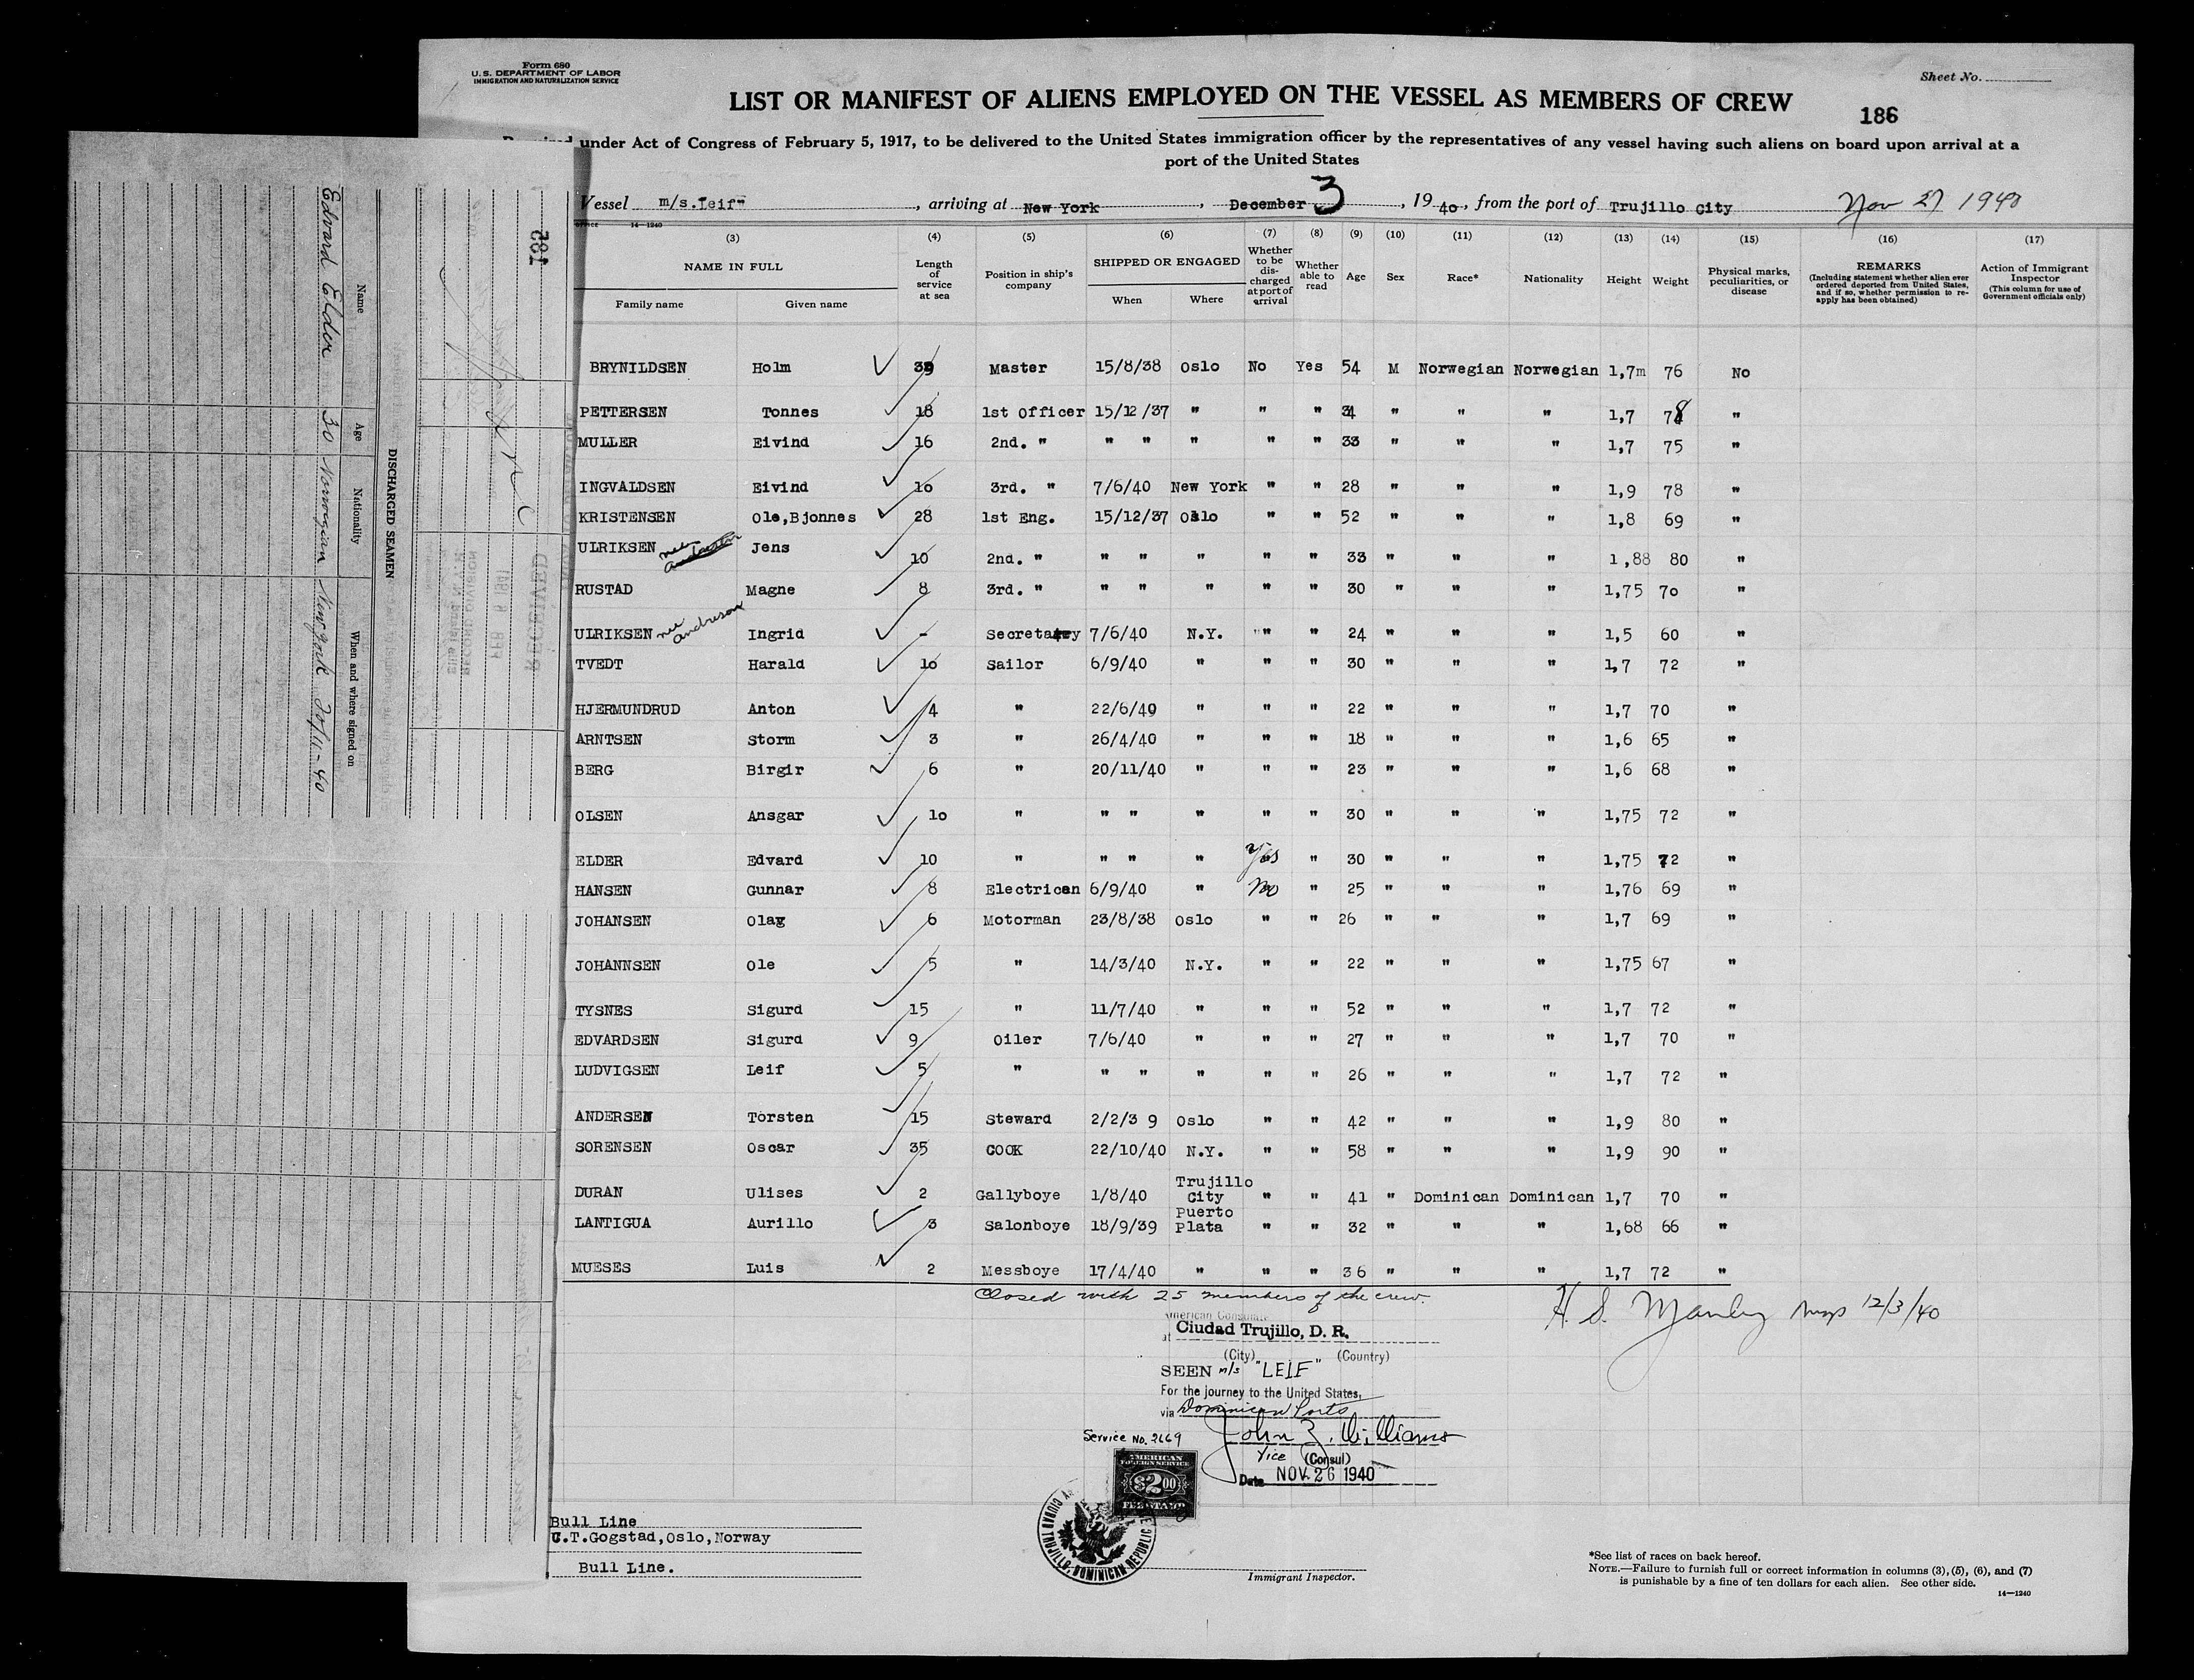 Form 680
U.S. DEPARTMENT OF LABOR
IMMIGRATION AND NATURALIZATION SERVICE
Sheet No.
LIST OR MANIFEST OF ALIENS EMPLOYED ON THE VESSEL AS MEMBERS OF CREW
186
under Act of Congress of February 5, 1917, to be delivered to the United States immigration officer by the representatives of any vessel having such aliens on board upon arrival at a
port of the United States
Vessel m/s. Leif" , arriving at New York , December 3 , 1940, from the port of Trujillo City Nov 27 1940
14—1240
(3) (4) (5) (6) (7) (8) (9) (10) (11) (12) (13) (14) (15) (16) (17)
NAME IN FULL
Family name Given name
Length of service at sea
Position in ship's company
SHIPPED OR ENGAGED
When Where
Whether to be discharged at port of arrival
Whether able to read
Age
Sex
Race*
Nationality
Height
Weight
Physical marks, peculiarities, or disease
REMARKS
(Including statement whether alien ever ordered deported from United States, and if so, whether permission to re-apply has been obtained)
Action of Immigrant Inspector
(This column for use of Government officials only)
BRYNILDSEN Holm 39 Master 15/8/38 Oslo No Yes 54 M Norwegian Norwegian 1,7m 76 No
PETTERSEN Tonnes 18 1st Officer 15/12/37 " " " 34 " " " 1,7 78 "
MULLER Eivind 16 2nd. " " " " " " 33 " " " 1,7 75 "
INGVALDSEN Eivind 10 3rd. " 7/6/40 New York " " 28 " " " 1,9 78 "
KRISTENSEN Ole,Bjonnes 28 1st Eng. 15/12/37 Oslo " " 52 " " " 1,8 69 "
ULRIKSEN Jens 10 2nd. " " " " " " 33 " " " 1,88 80 "
RUSTAD Magne 8 3rd. " " " " " " 30 " " " 1,75 70 "
ULRIKSEN nee Andreson Ingrid - Secretary 7/6/40 N.Y. " " 24 " " " 1,5 60 "
TVEDT Harald 10 Sailor 6/9/40 " " " 30 " " " 1,7 72 "
HJERMUNDRUD Anton 4 " 22/6/40 " " " 22 " " " 1,7 70 "
ARNTSEN Storm 3 " 26/4/40 " " " 18 " " " 1,6 65 "
BERG Birgir 6 " 20/11/40 " " " 23 " " " 1,6 68 "
OLSEN Ansgar 10 " " " " " " 30 " " " 1,75 72 "
ELDER Edvard 10 " " " " Yes " 30 " " " 1,75 72 "
HANSEN Gunnar 8 Electrican 6/9/40 " No " 25 " " " 1,76 69 "
JOHANSEN Olav 6 Motorman 23/8/38 Oslo " " 26 " " " 1,7 69 "
JOHANNSEN Ole 5 " 14/3/40 N.Y. " " 22 " " " 1,75 67 "
TYSNES Sigurd 15 " 11/7/40 " " " 52 " " " 1,7 72 "
EDVARDSEN Sigurd 9 Oiler 7/6/40 " " " 27 " " " 1,7 70 "
LUDVIGSEN Leif 5 " " " " " " 26 " " " 1,7 72 "
ANDERSEN Torsten 15 Steward 2/2/3 9 Oslo " " 42 " " " 1,9 80 "
SORENSEN Oscar 35 COOK 22/10/40 N.Y. " " 58 " " " 1,9 90 "
DURAN Ulises 2 Gallyboye 1/8/40 Trujillo City " " 41 " Dominican Dominican 1,7 70 "
LANTIGUA Aurillo 3 Salonboye 18/9/39 Puerto Plata " " 32 " " " 1,68 66 "
MUESES Luis 2 Messboye 17/4/40 " " " 36 " " " 1,7 72 "
Closed with 25 members of the crew.
H. S. Manley 12/3/40
American Consulate
at Ciudad Trujillo, D. R.
(City) (Country)
SEEN m/s "LEIF"
For the journey to the United States,
via Dominican Ports
Service No. 2669
John Z. Williams
Vice (Consul)
Date NOV. 26 1940
AMERICAN
FOREIGN SERVICE
$2.00
FEE STAMP
CIUDAD TRUJILLO, DOMINICAN REPUBLIC
Bull Line
C.T.Gogstad,Oslo,Norway
Bull Line.
Immigrant Inspector.
*See list of races on back hereof.
NOTE.—Failure to furnish full or correct information in columns (3), (5), (6), and (7)
is punishable by a fine of ten dollars for each alien. See other side.
14—1240
187
DISCHARGED SEAMEN
Name Age Nationality When and where signed on
Edvard Elder 30 Norwegian New York 20/11-40
RECEIVED
FEB 6 1941
RECORD DIVISION